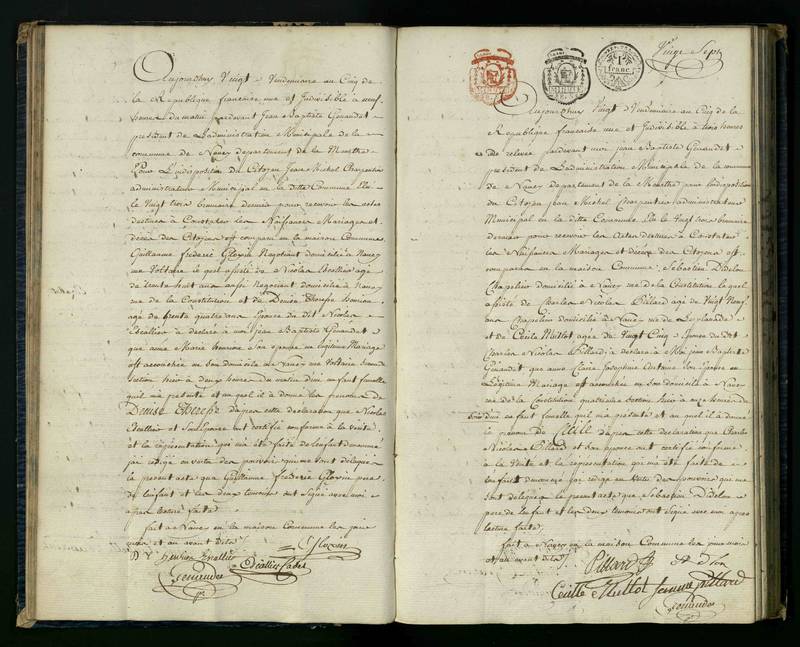 Aujourdhuy Vingt Vendemiaire an Cinq de
la Republique francaise une et Indivisible à neuf
heures du matin pardevant Jean Baptiste Geraudet
président de Ladministration Municipale de la
commune de Nancy departement de la Meurthe
Pour L'indisposition du Citoyen Jean Michel Charpentier
administrateur Municipal en la ditte Commune Elu
le Vingt trois brumaire dernier pour recevoir les actes
destinés à Constater les Naissances Mariages et
décès des Citoyens est comparu en la maison Commune
Guillaume Frederic Negotiant domicilié à Nancy
rue Voltaire le quel assisté de Nicolas agé
de trente huit ans aussi Negotiant domicilié à Nancy
rue de la Constitution et de Denise Therese
agé de trente quatre ans Epouse du dit Nicolas
à déclaré à moi Jean Baptiste Geraudet
que anne Marie son epouse en legitime Mariage
est accouchée en son domicile a Nancy rue Voltaire
Section hier à deux heures du matin d'un enfant femelle
qu'il ma présenté et au quel il a donné les prenoms de
Denise Therese dapres cette declaration que Nicolas
et Son Epouse ont certifié conforme à la verité
et la représentation qui ma été faite de lenfant denommé
jai redigé en vertu des pouvoirs qui me sont délégués
le present acte que Guillaume Frederic pere
de lenfant et les deux temoins ont Signé avec moi
apres lecture faite
fait a Nancy en la maison Commune les jour
mois et an avant dits
Vingt Sept
1 franc
Aujourdhuy Vingt Vendemiaire an Cinq de la
Republique francaise une et Indivisible à trois heures
de relevée pardevant moi Jean Baptiste Geraudet
président de Ladministration Municipale de la commune
de Nancy departement de la Meurthe pour lindisposition
du Citoyen Jean Michel Charpentier administrateur
Municipal en la ditte Commune Elu le Vingt trois brumaire
dernier pour recevoir les actes destinés à Constater
les Naissances Mariages et décès des Citoyens est
comparu en la maison Commune Sebastien Didelon
Chapelier domicilié à Nancy rue de la Constitution le quel
assisté de Charles Nicolas Pillard agé de Vingt Neuf
ans Chapelier domicilié à Nancy rue de
et de Cecile Multot agée de Vingt Cinq Epouse du dit
Charles Nicolas Pillard à déclaré à Moi Jean Baptiste
Geraudet que anne Claire Josephine Antoine son Epouse en
Légitime Mariage est accouchée en son domicile à Nancy
rue de la Constitution quatrieme Section hier à onze heures du
Soir d'un enfant femelle qu'il ma présenté et au quel il a donné
le prenom de Cecile dapres cette declaration que Charles
Nicolas Pillard et son epouse ont certifié conforme
à la Verité et la représentation qui ma été faite de
lenfant denommé jai redigé en vertu des pouvoirs que me
sont delegués le present acte que Sebastien Didelon
pere de lenfant et les deux temoins ont Signé avec moi apres
lecture faite
fait à Nancy en la maison Commune les jour mois
et an avant dits
Pillard
Cecille Multot femme Pillard